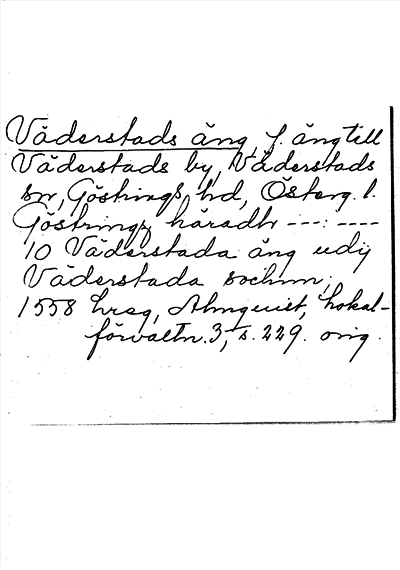 Väderstads äng, f. äng till
Väderstads by, Väderstads
sn, Göstrings hd, Österg. l.
Göstringz häradh ---: ----
10 Väderstada äng udij
Väderstada sochnn;
1558 hrsg, Almquist, Lokal-
förvaltn. 3, s. 229. orig.